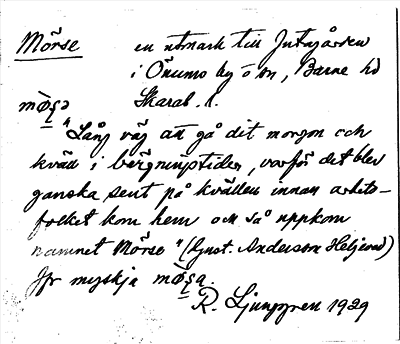 Mörse en utmark till Jutagården
i Önums by o sn, Barne hd
Skarab. l.
mö̱ʂə
"Lång väg att gå dit morgon och
kväll i bärgningstiden, varför det blev
ganska sent på kvällen innan arbets-
folket kom hem och så uppkom
namnet Mörse" (Gust. Anderson Heljered)
Jfr myskja mö̱ʂa.
R. Ljunggren 1929